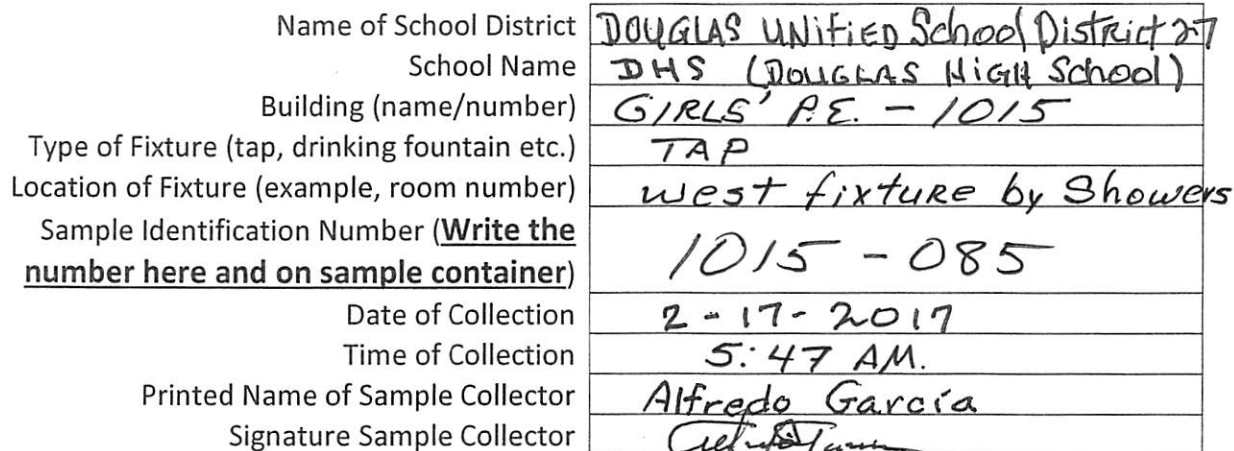 Name of School District DOUGLAS UNiFiED School District 27
School Name DHS (DOUGLAS HiGH School)
Building (name/number) GIRLS' P.E. - 1015
Type of Fixture (tap, drinking fountain etc.) TAP
Location of Fixture (example, room number) west fixtuRe by Showers
Sample Identification Number (Write the
number here and on sample container) 1015 - 085
Date of Collection 2 - 17 - 2017
Time of Collection 5:47 AM.
Printed Name of Sample Collector Alfredo García
Signature Sample Collector